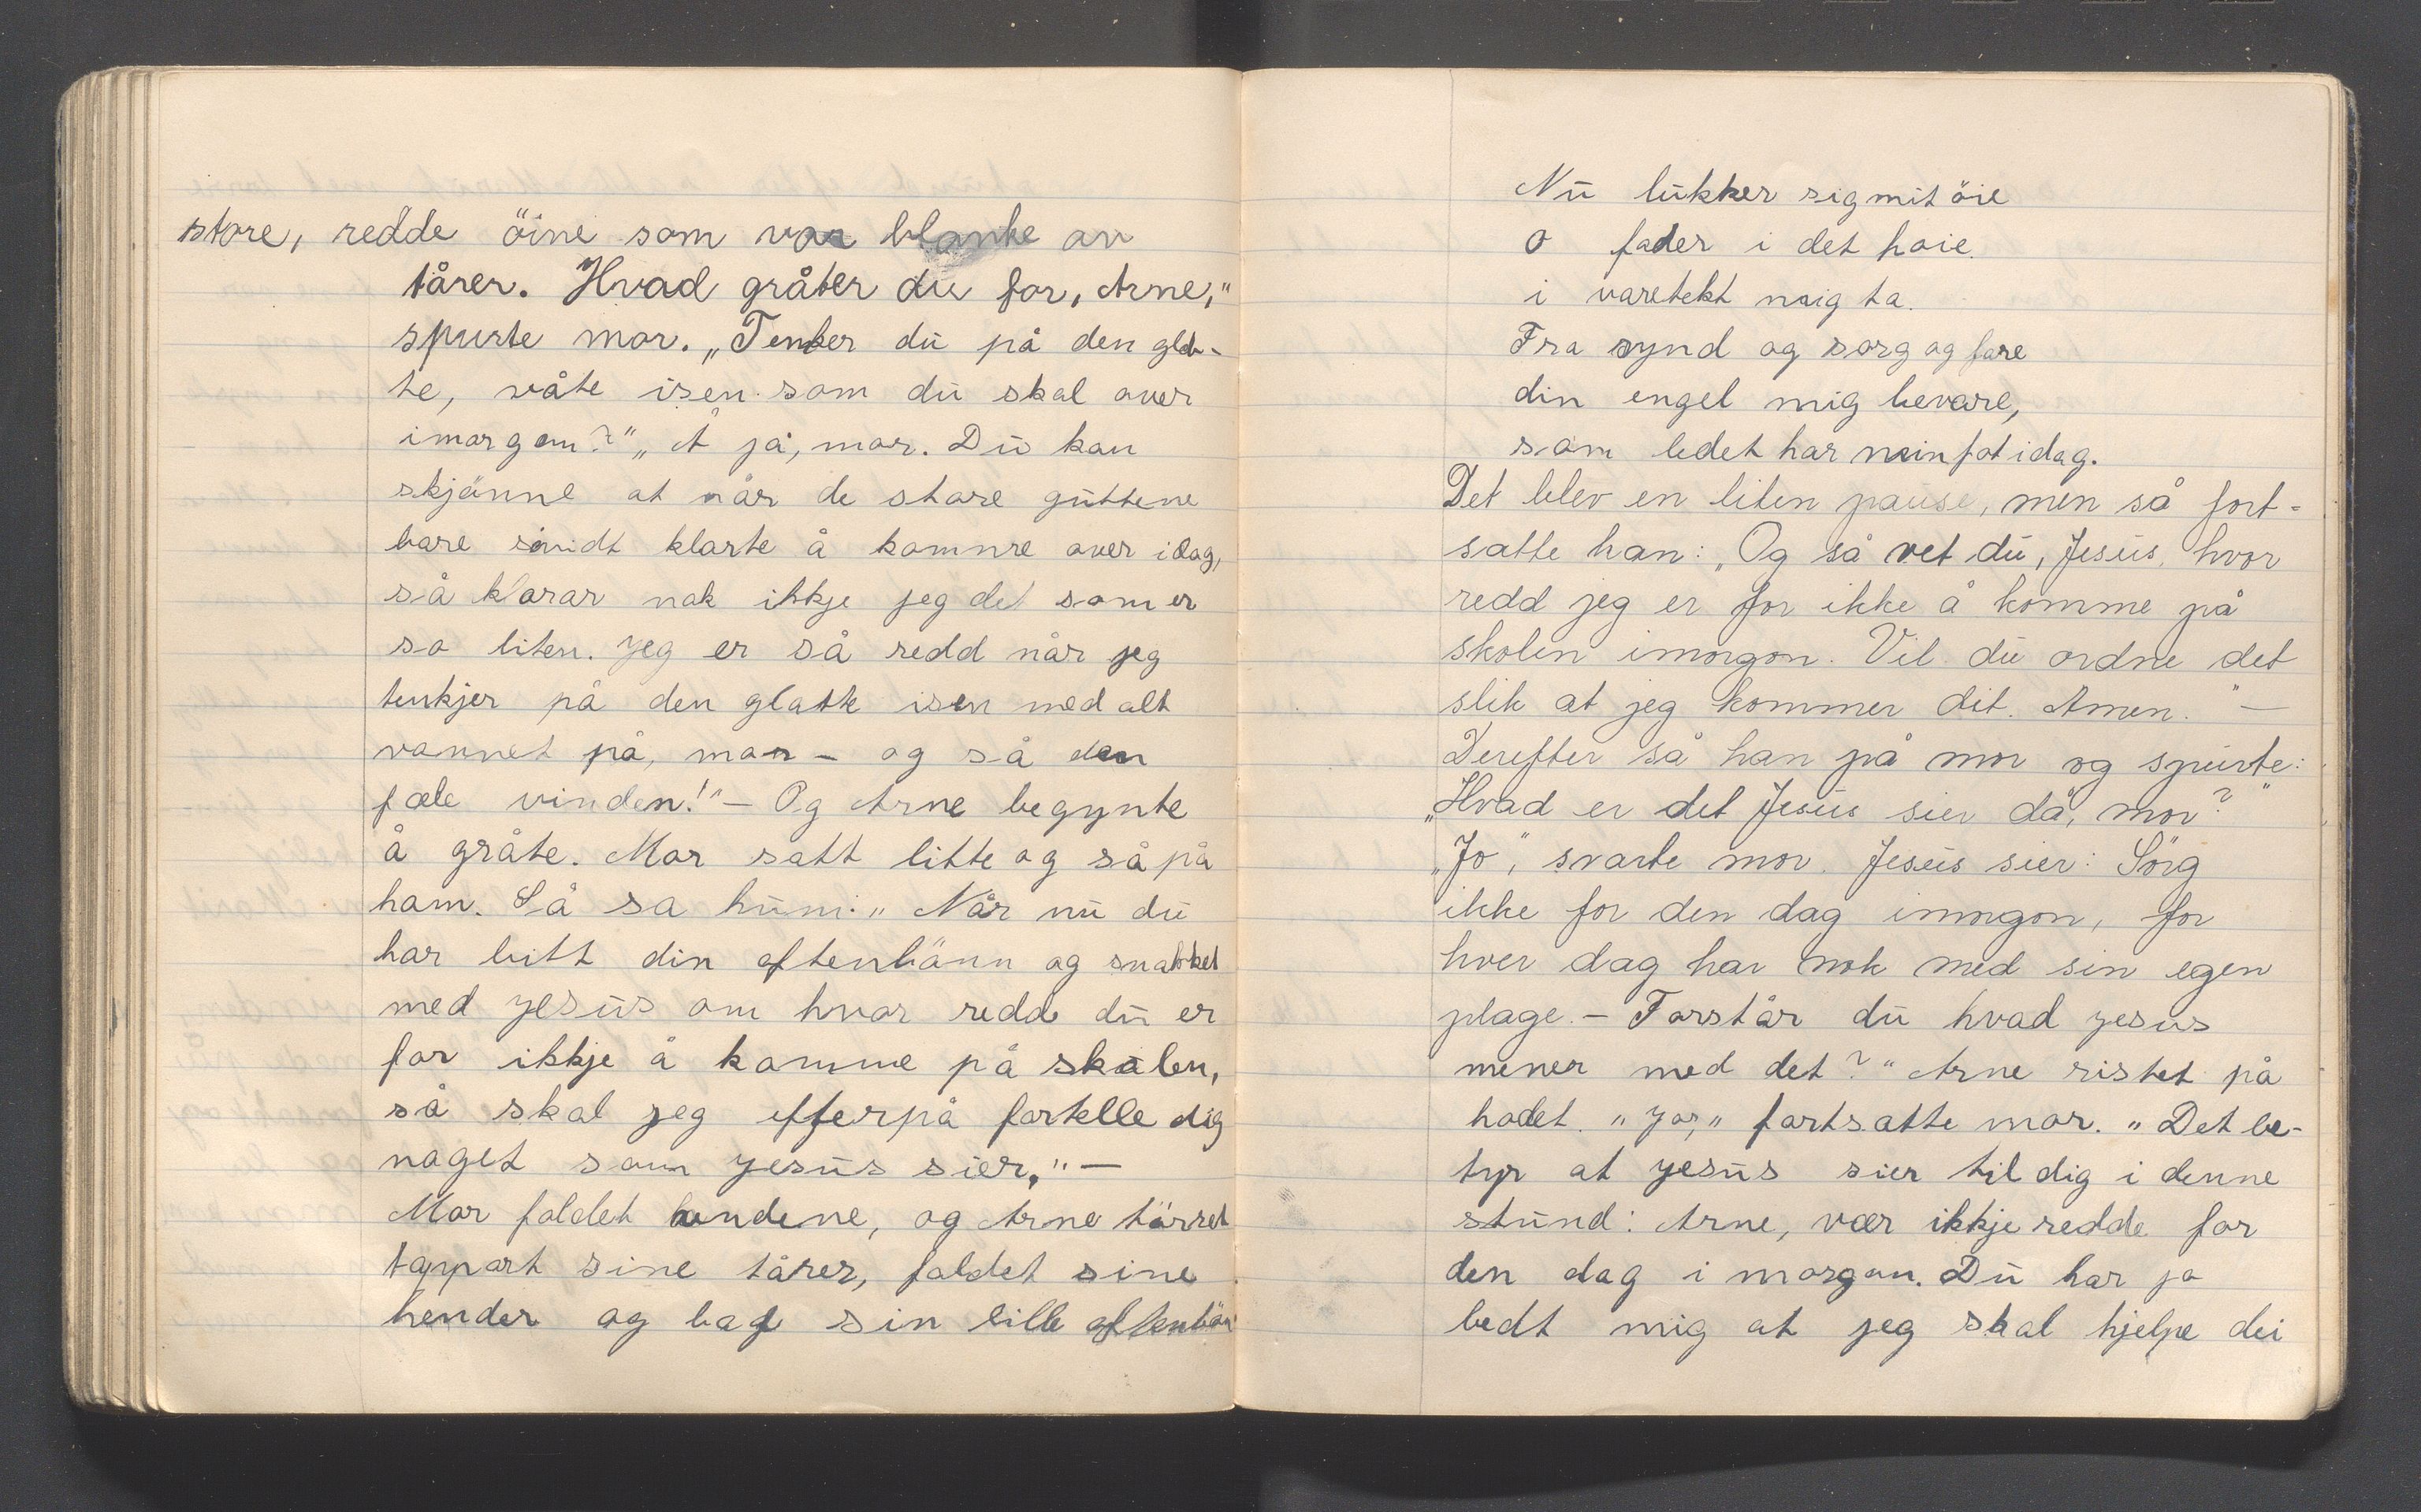 store, redde öine som var blanke av
tårer. Hvad gråter du for, Arne,"
spurte mor. „Tenker du på den glat-
te, våte isen som du skal over
imorgon?" „Å ja, mor. Du kan
skjönne at når de store guttene
bare såvidt klarte å komme over idag,
så klarar nok ikkje jeg det som er
so liten. Jeg er så redd når jeg
tenkjer på den glatte isen med alt
vannet på, mor - og så den
fæle vinden!" - Og Arne begynte
å gråte. Mor satt litte og så på
ham. Så sa hun: „Når nu du
har bitt din aftenbönn og snakket
med Jesus om hvor redde du er
for ikkje å komme på skolen,
så skal jeg efterpå fortelle dig
noget som Jesus sier." -
Mor foldet hendene, og Arne törret
tappart sine tårer, foldet sine
hender og bad sin lille aftenbön
Nu lukker sig mit öie
o fader i det hoie.
i varetekt mig ta.
Fra synd og sorg og fare
din engel mig bevare,
som ledet har min fot idag.
Det blev en liten pause, men så fort-
satte han: „Og så vet du, Jesus, hvor
redd jeg er for ikke å komme på
skolen imorgon. Vil du ordne det
slik at jeg kommer dit. Amen." -
Derefter så han på mor og spurte:
„Hvad er det Jesus sier då, mor?"
„Jo", svarte mor. Jesus sier: Sörg
ikke for den dag imorgon, for
hver dag har nok med sin egen
plage. - Forstår du hvad Jesus
mener med det?" Arne ristet på
hodet. „Jo," fortsatte mor. „Det be-
tyr at Jesus sier til dig i denne
stund: Arne, vær ikkje redde for
den dag i morgon. Du har jo
bedt mig at jeg skal hjelpe dei